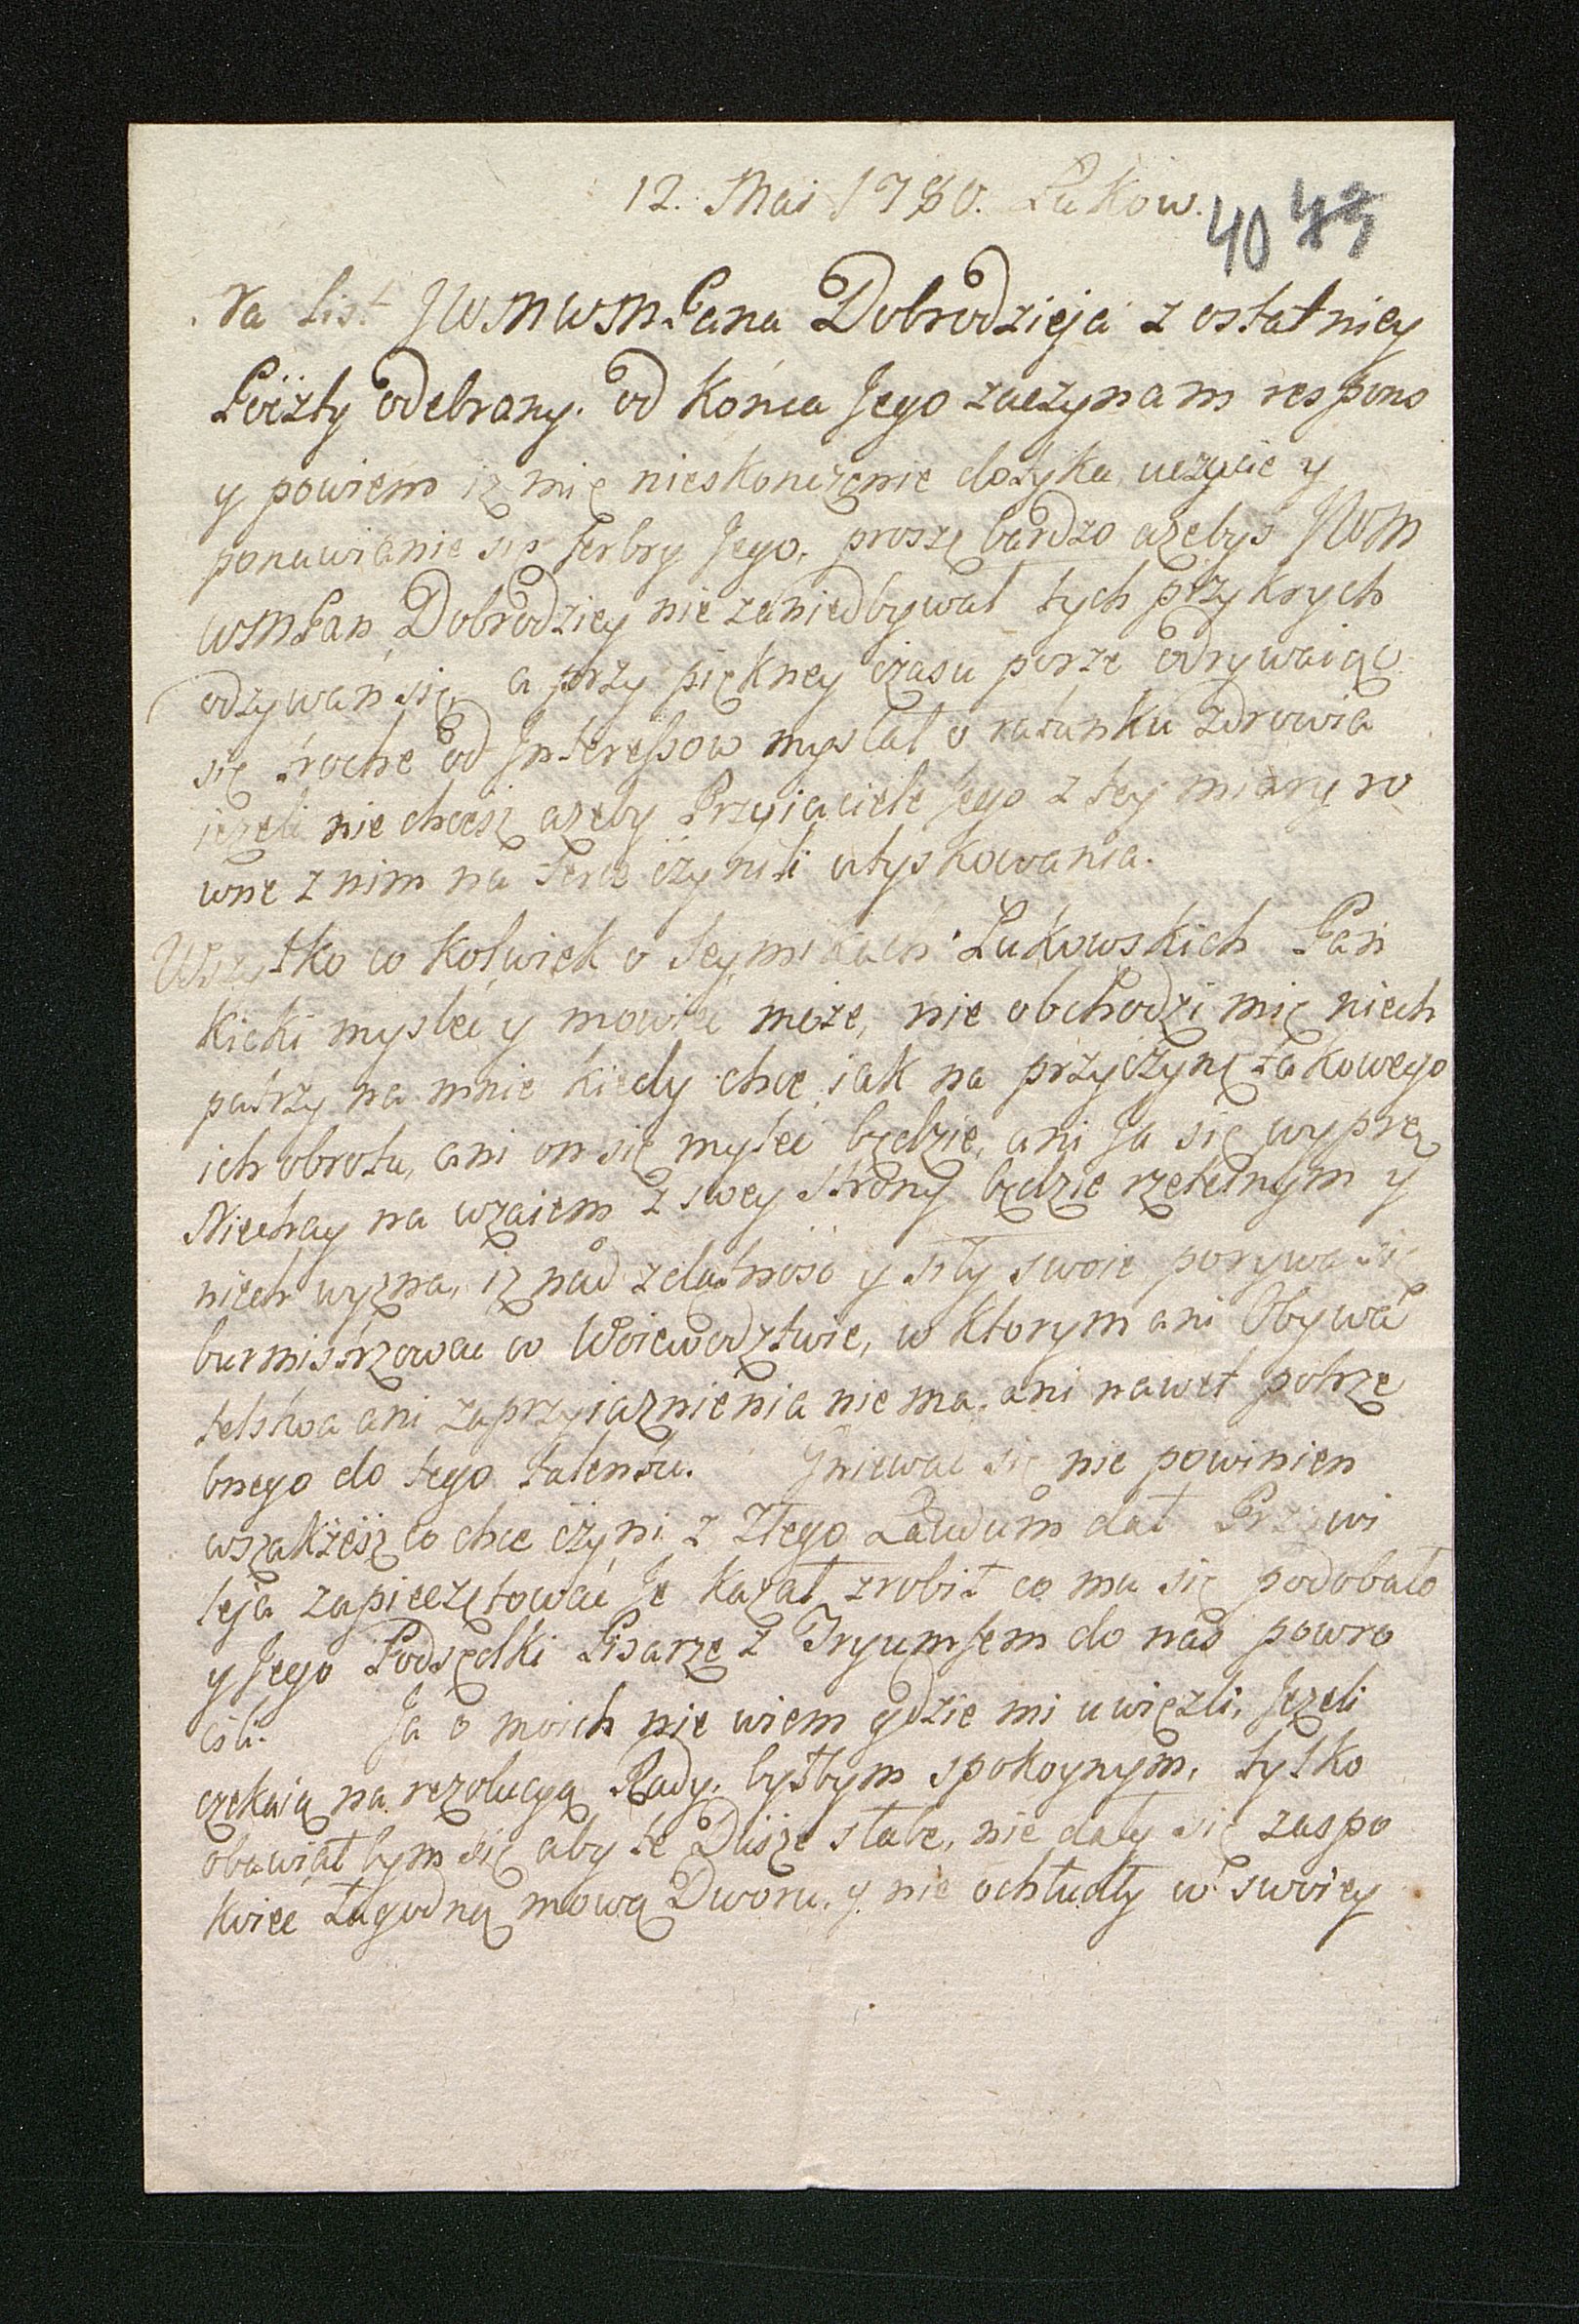 12. Mai 1780. Łukow.
40 43
Na List JWMWMPana Dobrodzieja z ostatniey
Poczty odebrany. od końca Jego zaczynam respons
y powiem iż mię nieskonczenie dotyka uczycie y
ponawianie się Febry Jego, proszę bardzo ażebys JWM
WMPan Dobrodziey nie zaniedbywał tych przykrych
odzywan się, a przy piękney czasu porze odrywaiąc
się troche od Interessow myslał o ratunku zdrowia
ieżeli nie chcesz ażeby Przyiaciele Jego z tey miary ro
wne z nim na Ferbę czynili utyskowania.
Wszytko co kolwiek o Seymikach Łukowskich Pan
Kicki mysleć y mowić może, nie obchodzi mię niech
patrzy na mnie kiedy chce iak na przyczynę takowego
ich obrotu, ani on się myleć będzie, ani Ja się wyprę
Niechay na wzaiem z swey strony będzie rzetelnym y
niech wyzna, iż nad zdatnosc y siły swoie porywa się
burmistrzować w Woiewodztwie, w ktorym ani Obywa
telstwa ani zaprzyiaznienia nie ma, ani nawet potrze
bnego do tego talentu. Gniewac się nie powinien
wszakżesz co chce czyni z złego Laudum dał Przywi
leja zapieczętować Je kazał zrobił co mu się podobało
y Jego Podsędki Pisarze z Tryumfem do nas powro
cili. Ja o moich nie wiem gdzie mi uwięzli, Jeżeli
czekaią na rezolucyą Rady, byłbym spokoynym, tylko
obawiał bym się aby te Dusze słabe, nie dały się zaspo
koić łagodną mową Dworu, y nie ochłudły w swoiey